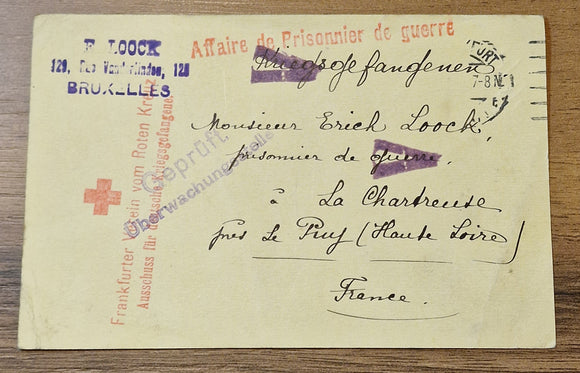 F. LOOCK
129, Rue Vanderlinden, 129
BRUXELLES
Affaire de Prisonnier de guerre
Kriegsgefangenen
Monsieur Erich Loock,
prisonnier de guerre,
à La Chartreuse
près Le Puy (Haute Loire)
France.
Geprüft
Überwachungsstelle
Frankfurter Verein vom Roten Kreuz
Ausschuss für deutsche Kriegsgefangene
FURT
7-8 N